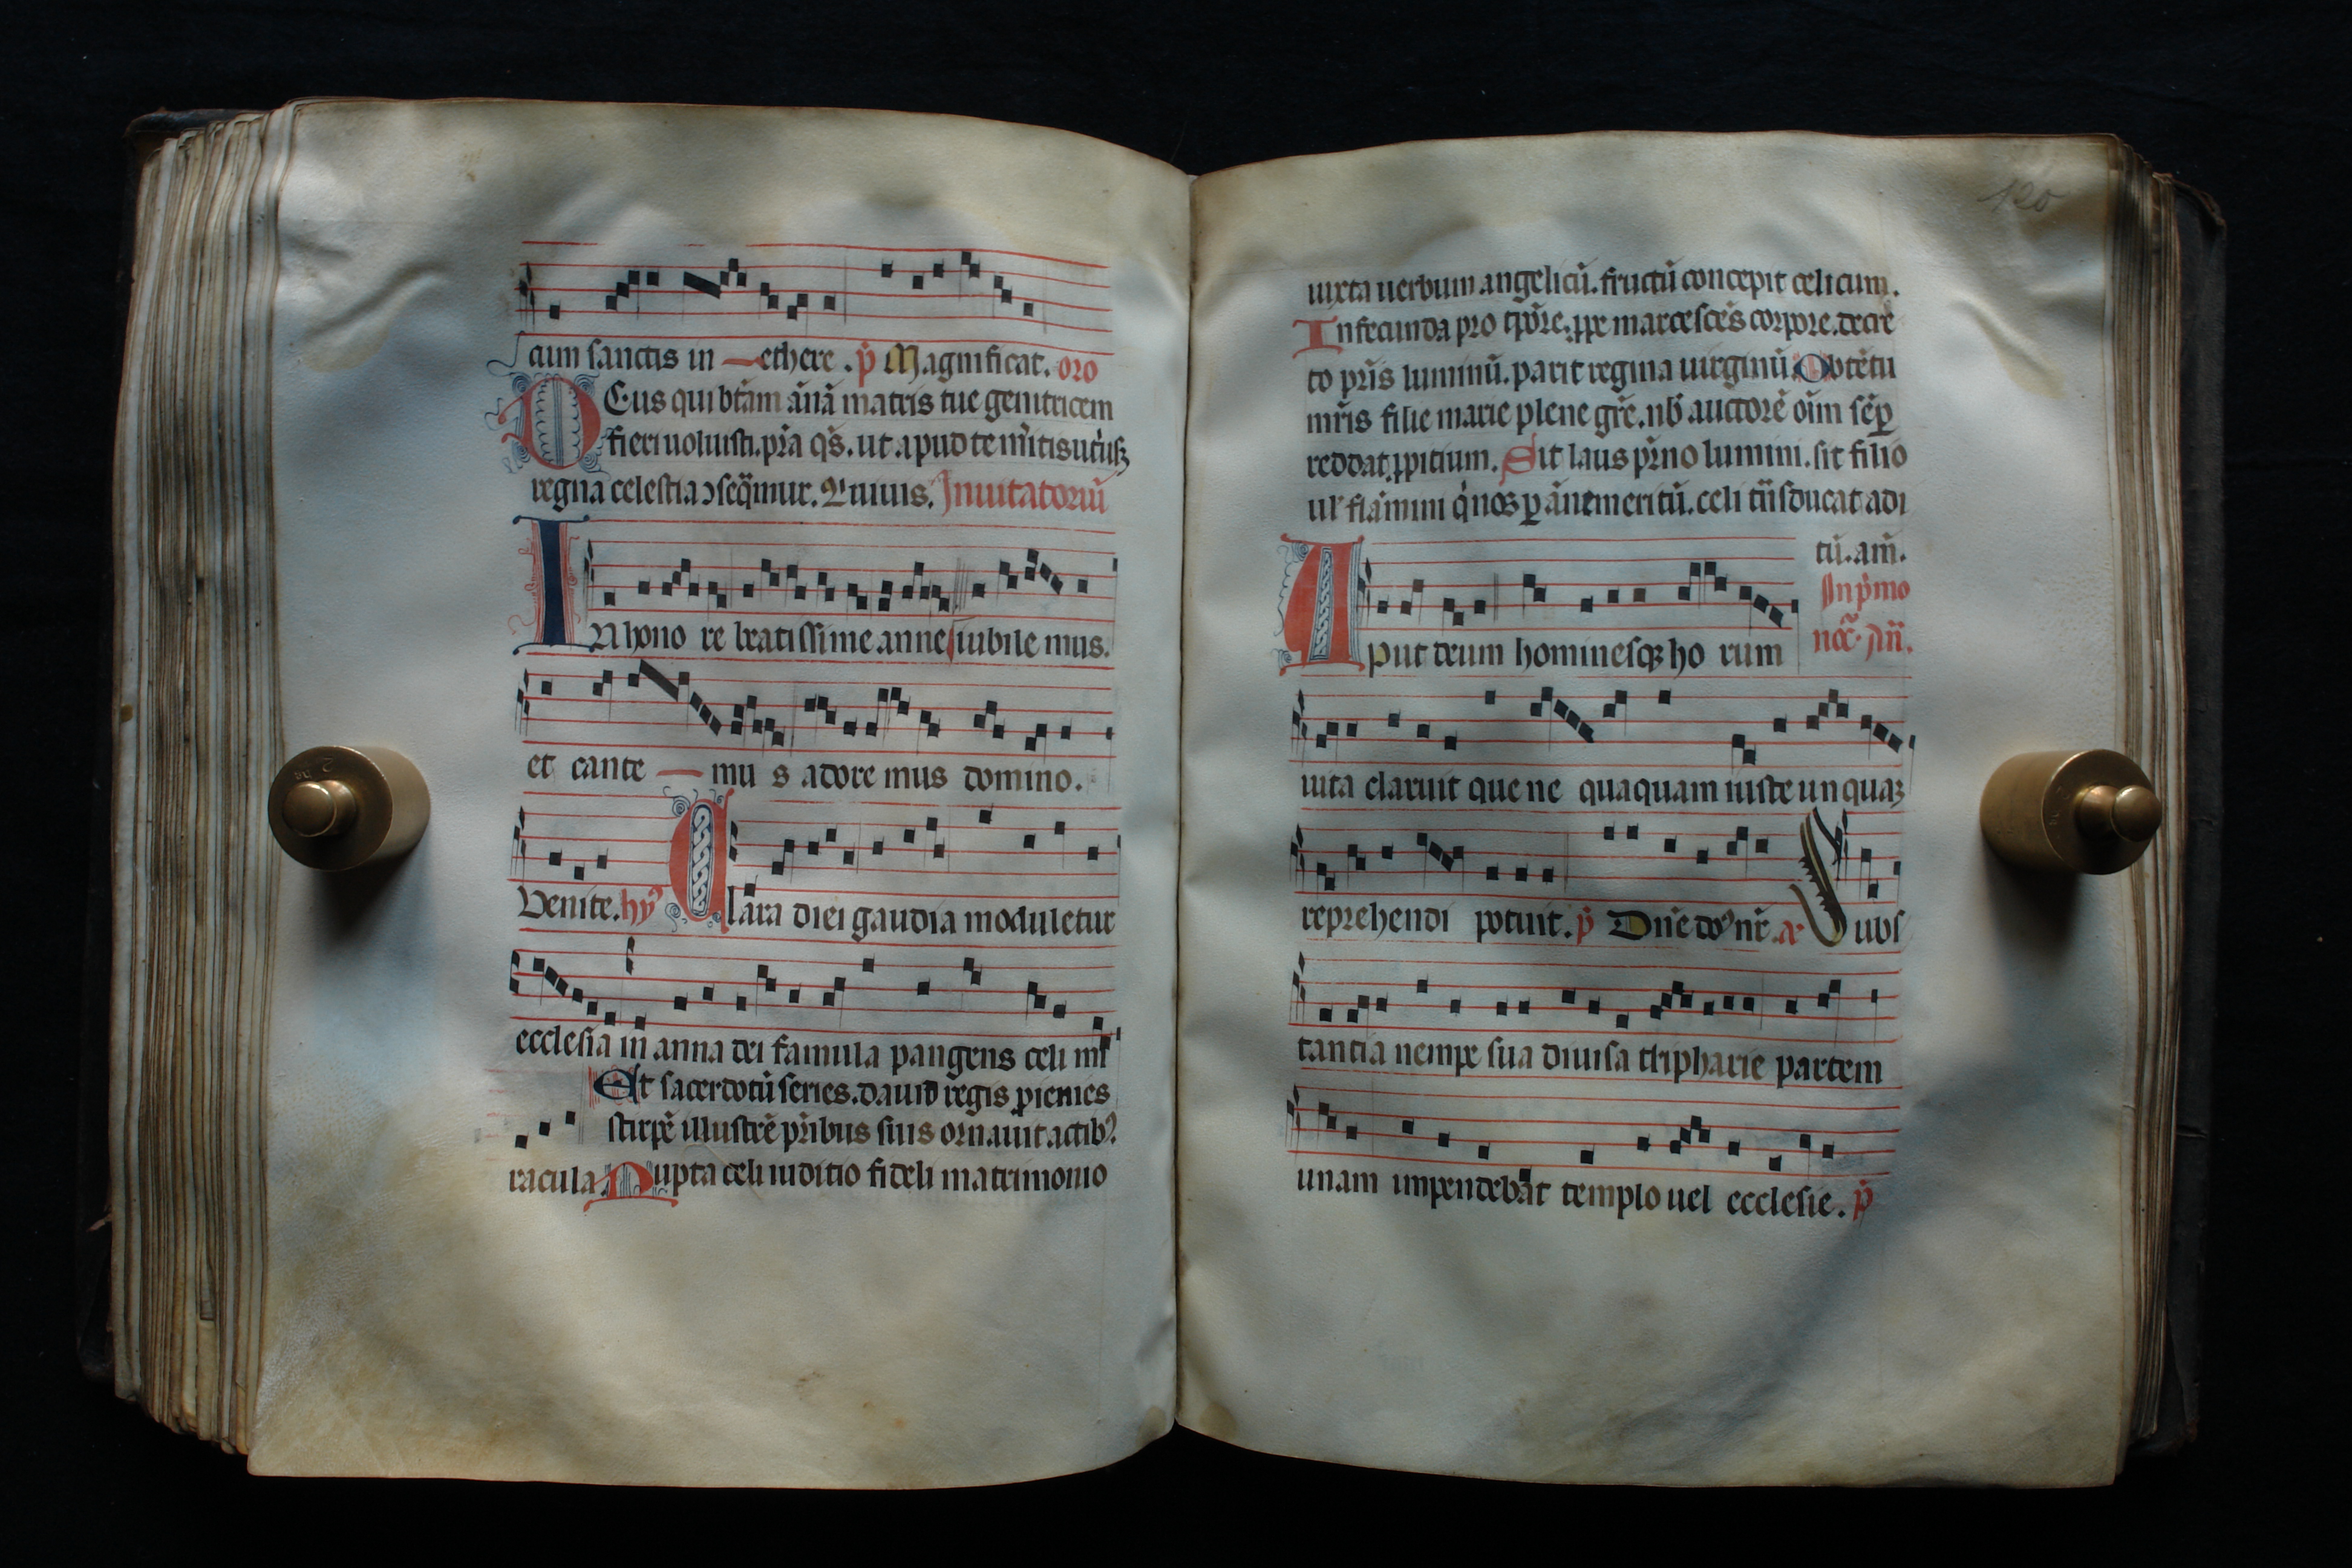 cum sanctis in ethere. p̄ Magnificat. oro
DEus qui btām ānā matris tue genitricem
fieri uoluisti. pr̄a qs̄. ut apud te
regna celestia ꝯseq̄mur. Inuitatoriū
IN hono re beatissime anne iubile mus.
et cante mu s adore mus domino.
Venite. hy⁹ Clara diei gaudia moduletur
ecclesia in anna dei famula pangens celi mi
Et sacerdotū series. dauid regis ꝓienies
stirpē illustrē pr̄ibus suis ornauit actib⁹.
racula. Nupta celi iuditio fideli matrimonio
120
iuxta uerbum angelicū. fructū concepit celicum.
Infecunda pro tp̄ore. ꝓpe marcescēs corpore. decre
to pr̄is luminū. parit regina uirginū. Obtētu
mr̄is filie marie plene gr̄e. nb̄ auctorē oīm sēꝑ
reddat ꝓpitium. Sit laus pr̄no lumini. sit filio
ul' flamini q̇ nos ꝑ āne meritū. celi ducat adi
tū. am̄.
In p̄mo
noc̄. An̄.
APut deum hominesqꝫ ho rum
uita claruit que ne quaquam iuste un quaꝫ
reprehendi potuit. p̄ Dn̄e do⁹ nr̄. a. Subs
tantia nempe sua diuisa tripharie partem
unam impendebat templo uel ecclesie. p̄